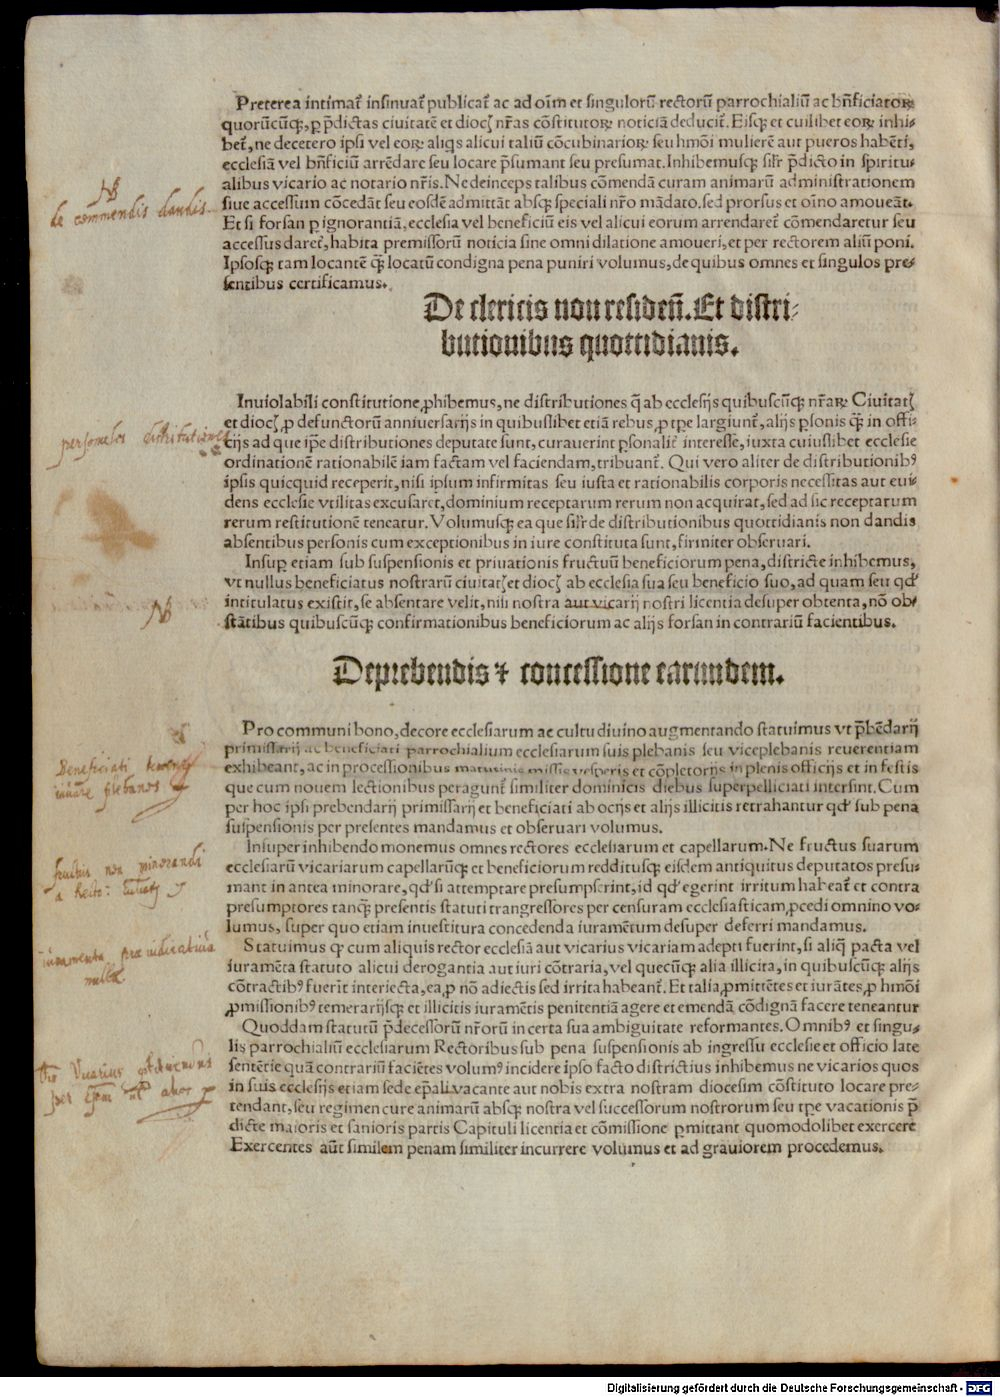 Preterea intimat᷑ insinuat᷑ publicat᷑ ac ad oīm et singulorū rectorū parrochialiū ac bn̄ficiatoꝝ
quorūcūqꝫ, ꝑ p̄dictas ciuitatē et diocꝫ nr̄as cōstitutoꝝ noticiā deducit᷑. Eisqꝫ et cuilibet eoꝝ inhi⸗
bet᷑, ne decetero ipsi vel eoꝝ aliqs alicui taliū cōcubinarioꝝ seu hmōi mulierē aut pueros habēti,
ecclesiā vel bn̄ficiū arrēdare seu locare p̄sumant seu presumat. Inhibemusqꝫ sil̄r p̄dicto in spiritu⸗
alibus vicario ac notario nr̄is. Ne deinceps talibus cōmendā curam animarū administrationem
siue accessum cōcedāt seu eosdē admittāt absqꝫ speciali nr̄o mādato, sed prorsus et oīno amoueāt.
Et si forsan ꝑ ignorantiā, ecclesia vel beneficiū eis vel alicui eorum arrendaret᷑ cōmendaretur seu
accessus daret᷑, habita premissorū noticia sine omni dilatione amoueri, et per rectorem aliū poni.
Ipsosqꝫ tam locantē q̄ꝫ locatū condigna pena puniri volumus, de quibus omnes et singulos pre⸗
sentibus certificamus.
NB
de commendis dandis
De clericis non residen̄. Et distri⸗
butionibus quottidianis.
Inuiolabili constitutione ꝓhibemus, ne distributiones q̄ ab ecclesijs quibuscūqꝫ nr̄aꝝ Ciuitatꝫ
et diocꝫ ꝓ defunctorū anniuersarijs in quibuslibet etiā rebus, ꝓ tꝑe largiunt᷑, alijs ꝑsonis q̄ꝫ in offi⸗
cijs ad que ip̄e distributiones deputate sunt, curauerint ꝑsonalit᷑ interesse, iuxta cuiuslibet ecclesie
ordinationē rationabilē iam factam vel faciendam, tribuant᷑. Qui vero aliter de distributionibꝰ
ipsis quicquid receperit, nisi ipsum infirmitas seu iusta et rationabilis corporis necessitas aut eui⸗
dens ecclesie vtilitas excusaret, dominium receptarum rerum non acquirat, sed ad sic receptarum
rerum restitutionē teneatur. Volumusqꝫ ea que sil̄r de distributionibus quottidianis non dandis
absentibus personis cum exceptionibus in iure constituta sunt, firmiter obseruari.
Insuꝑ etiam sub suspensionis et priuationis fructuū beneficiorum pena, districte inhibemus,
vt nullus beneficiatus nostrarū ciuitatꝫ et diocꝫ ab ecclesia sua seu beneficio suo, ad quam seu qd̕
intitulatus existit, se absentare velit, nisi nostra aut vicarij nostri licentia desuper obtenta, nō ob⸗
stātibus quibuscūqꝫ confirmationibus beneficiorum ac alijs forsan in contrariū facientibus.
personales distributiones
NB
De prebendis ⁊ concessione earundem.
Pro communi bono, decore ecclesiarum ac cultu diuino augmentando statuimus vt p̄bēdarij
primissarij ac beneficiati parrochialium ecclesiarum suis plebanis seu viceplebanis reuerentiam
exhibeant, ac in processionibus matutinis missis vesperis et cōpletorijs in plenis officijs et in festis
que cum nouem lectionibus peragunt᷑ similiter dominicis diebus superpelliciati intersint. Cum
per hoc ipsi prebendarij primissarij et beneficiati ab ocijs et alijs illicitis retrahantur qd̕ sub pena
suspensionis per presentes mandamus et obseruari volumus.
Insuper inhibendo monemus omnes rectores ecclesiarum et capellarum. Ne fructus suarum
ecclesiarū vicariarum capellarūqꝫ et beneficiorum reddituſqꝫ eisdem antiquitus deputatos presu⸗
mant in antea minorare, qd̕ si attemptare presumpserint, id qd̕ egerint irritum habeat᷑ et contra
presumptores tanqꝫ presentis statuti trangressores per censuram ecclesiasticam, ꝓcedi omnino vo⸗
lumus, super quo etiam inuestitura concedenda iuramētum desuper deferri mandamus.
Statuimus qꝙ cum aliquis rector ecclesiā aut vicarius vicariam adepti fuerint, si aliq̄ pacta vel
iuramēta statuto alicui derogantia aut iuri cōtraria, vel quecūqꝫ alia illicita, in quibuscūqꝫ alijs
cōtractibꝰ fuerīt interiecta, ea, ꝓ nō adiectis sed irrita habeant᷑. Et talia ꝓmittētes et iurātes, ꝓ hmōi
ꝓmissionibꝰ temerarijsqꝫ et illicitis iuramētis penitentiā agere et emendā cōdignā facere teneantur
Quoddam statutū p̄decessorū nr̄orū in certa sua ambiguitate reformantes. Omnibꝰ et singu⸗
lis parrochialiū ecclesiarum Rectoribus sub pena suspensionis ab ingressu ecclesie et officio late
sentētie quā contrariū faciētes volumꝰ incidere ipso facto districtius inhibemus ne vicarios quos
in suis ecclesijs etiam sede ep̄ali vacante aut nobis extra nostram diocesim cōstituto locare pre⸗
tendant, seu regimen cure animarū absqꝫ nostra vel successorum nostrorum seu tꝑe vacationis p̄
dicte maioris et sanioris partis Capituli licentia et cōmissione ꝑmittant quomodolibet exercere
Exercentes aūt similem penam similiter incurrere volumus et ad grauiorem procedemus.
Beneficiati
plebanos
fructus non minorandi
a
iuramenta
nulla
Vicarius
per
Digitalisierung gefördert durch die Deutsche Forschungsgemeinschaft - DFG